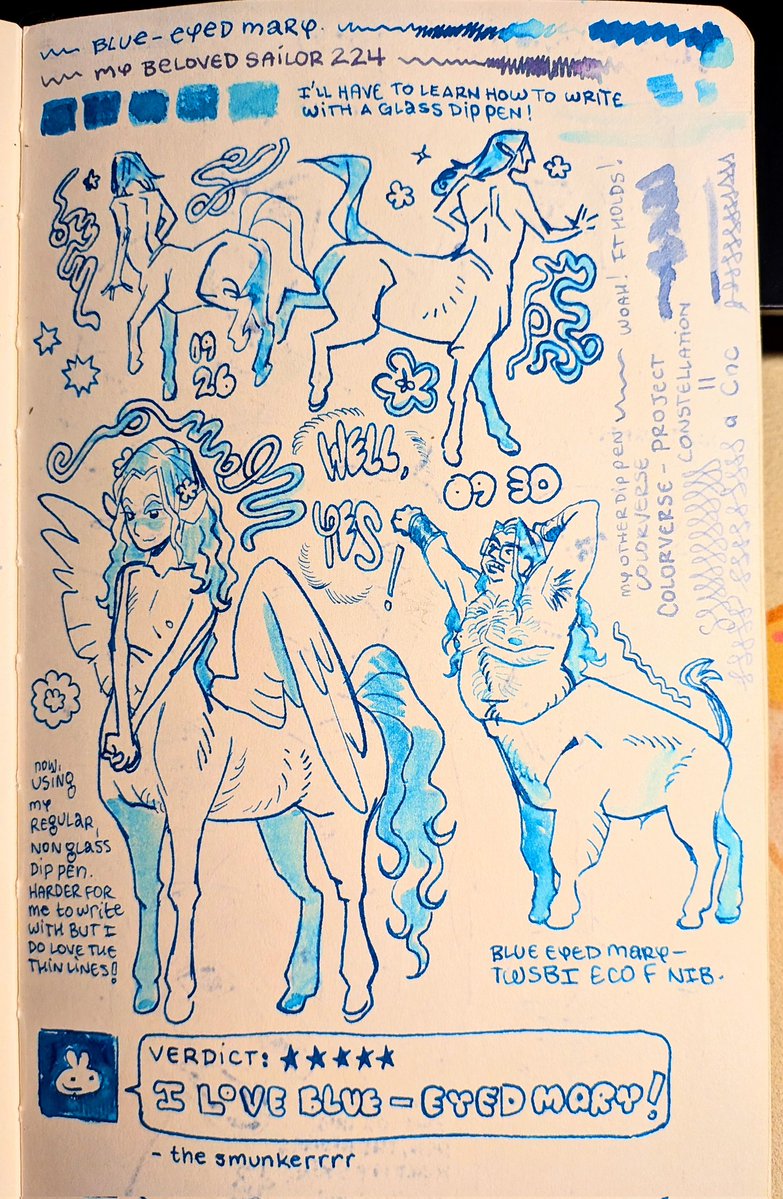 BLUE-EYED MARY.
MY BELOVED SAILOR 224
I'LL HAVE TO LEARN HOW TO WRITE
WITH A GLASS DIP PEN!
09
26
WELL,
YES!
09 30
MY OTHER DIP PEN WOAH! IT HOLDS!
COLORVERSE
COLORVERSE - PROJECT
CONSTELLATION
II
a
now,
USING
MY
REGULAR,
NON GLASS
DIP PEN.
HARDER FOR
me to write
WITH BUT I
DO LOVE THE
THIN LINES!
BLUE EYED MARY-
TWSBI ECO F NIB.
VERDICT: ★★★★★
I LOVE BLUE-EYED MARY!
- the smunkerrrr